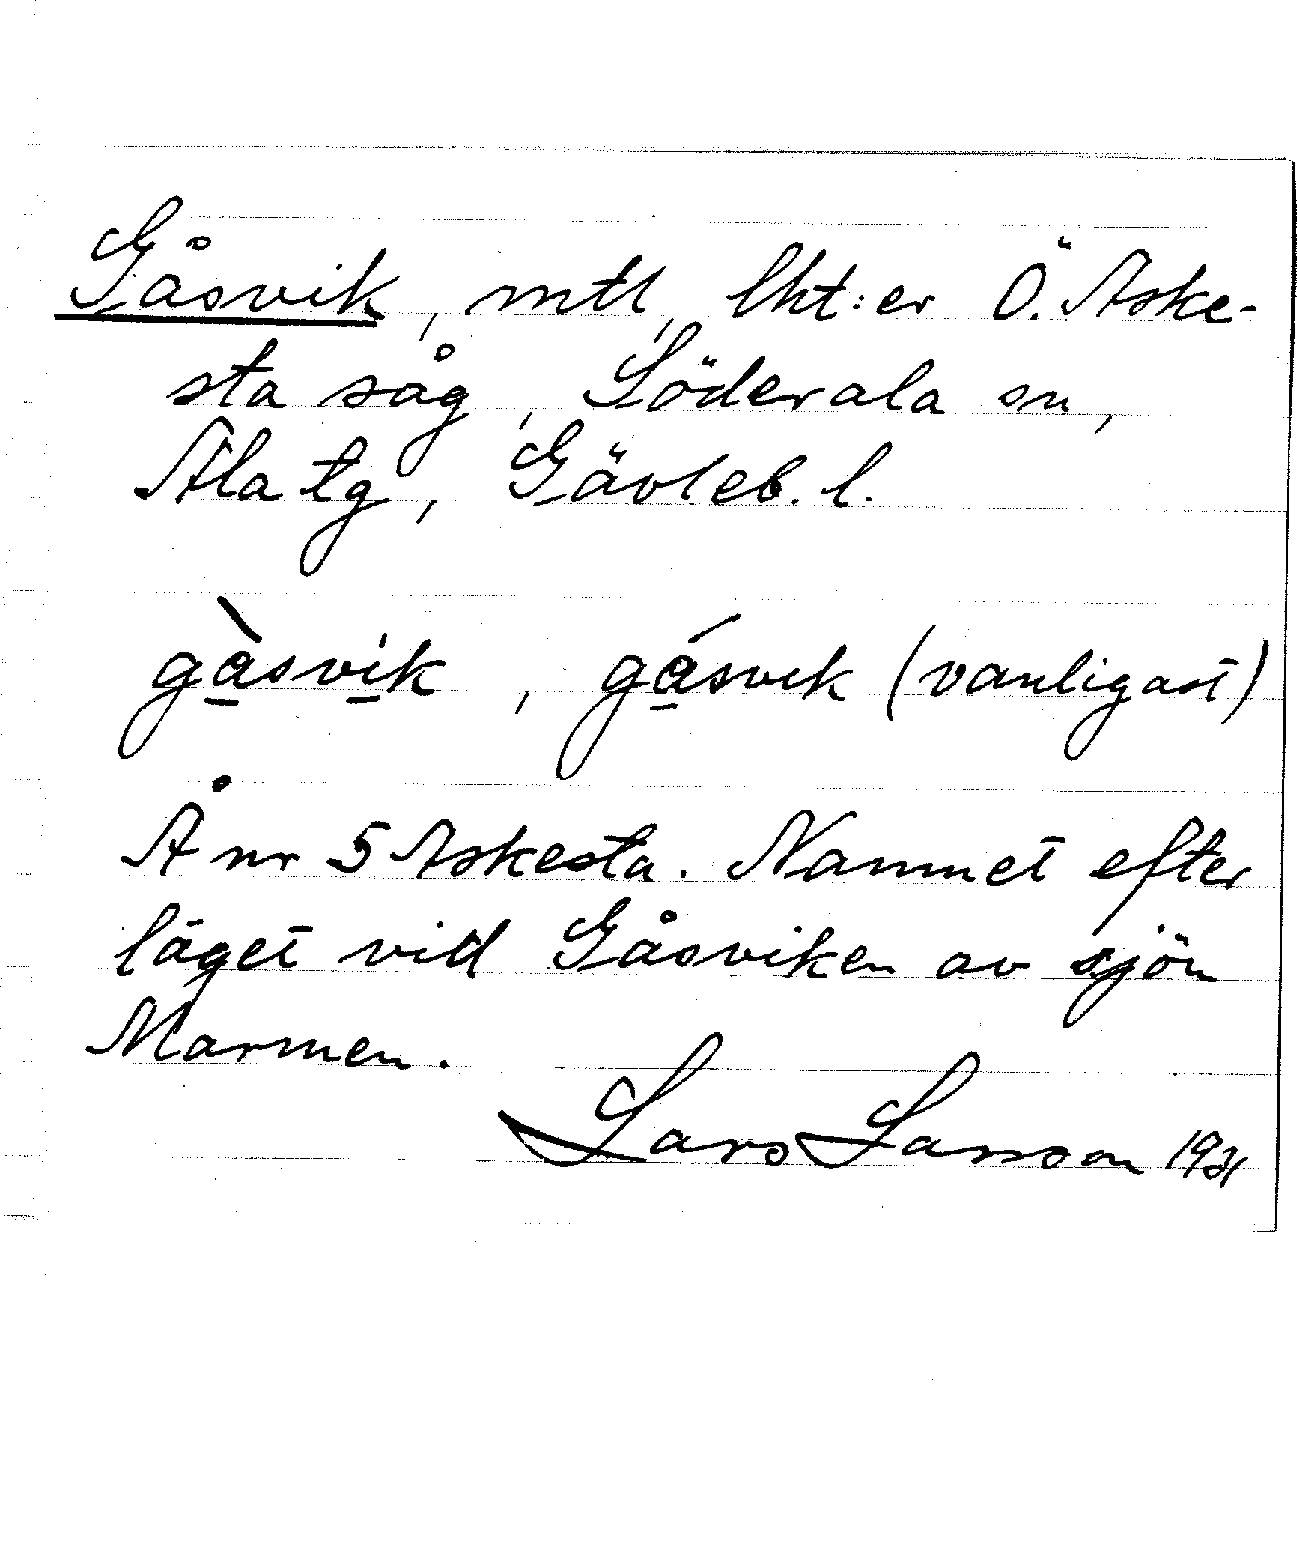 Gåsvik, mtl, lht:er Ö. Aske-
sta såg, Söderala sn,
Ala tg, Gävleb. l.
gàsvik, gásvik (vanligast)
Å nr 5 Askesta. Namnet efter
läget vid Gåsviken av sjön
Marmen.
Lars Larsson 1931